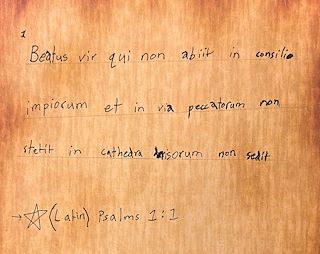 1
Beatus vir qui non abiit in consilio
impiorum et in via peccatorum non
stetit in cathedra derisorum non sedit
→☆(Latin) Psalms 1:1